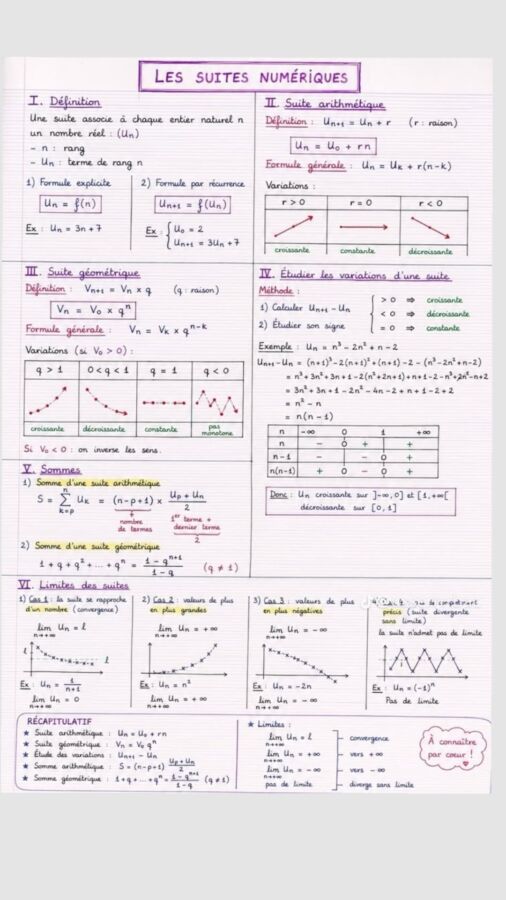 LES SUITES NUMÉRIQUES
I. Définition
Une suite associe à chaque entier naturel n
un nombre réel : (Un)
- n : rang
- Un : terme de rang n
1) Formule explicite
Un = f(n)
Ex : Un = 3n + 7
2) Formule par récurrence
Un+1 = f(Un)
Ex : { U0 = 2
Un+1 = 3Un + 7
II. Suite arithmétique
Définition : Un+1 = Un + r (r : raison)
Un = U0 + rn
Formule générale : Un = UK + r(n-k)
Variations :
r > 0 r = 0 r < 0
croissante constante décroissante
III. Suite géométrique
Définition : Vn+1 = Vn × q (q : raison)
Vn = V0 × q^n
Formule générale : Vn = VK × q^n-k
Variations (si V0 > 0) :
q > 1 0 < q < 1 q = 1 q < 0
croissante décroissante constante pas monotone
Si V0 < 0 : on inverse les sens.
IV. Étudier les variations d'une suite
Méthode :
1) Calculer Un+1 - Un
2) Étudier son signe
{ > 0 ⇒ croissante
< 0 ⇒ décroissante
= 0 ⇒ constante
Exemple : Un = n³ - 2n² + n - 2
Un+1 - Un = (n+1)³ - 2(n+1)² + (n+1) - 2 - (n³-2n²+n-2)
= n³+3n²+3n+1-2(n²+2n+1)+n+1-2-n³+2n²-n+2
= 3n² + 3n + 1 - 2n² - 4n - 2 + n + 1 - 2 + 2
= n² - n
= n(n - 1)
n -∞ 0 1 +∞
n - 0 + +
n - 1 - - 0 +
n(n-1) + 0 - 0 +
Donc : Un croissante sur ]-∞,0] et [1,+∞[
décroissante sur [0,1]
V. Sommes
1) Somme d'une suite arithmétique
S = Σ n k=p UK = (n-p+1) × Up + Un / 2
nombre de termes
1er terme + dernier terme / 2
2) Somme d'une suite géométrique
1 + q + q² + ... + q^n = 1 - q^n+1 / 1 - q (q ≠ 1)
VI. Limites des suites
1) Cas 1 : la suite se rapproche
d'un nombre (convergence)
lim Un = l
n→+∞
l l
Ex : Un = 1/n+1
lim Un = 0
n→+∞
2) Cas 2 : valeurs de plus
en plus grandes
lim Un = +∞
n→+∞
Ex : Un = n²
lim Un = +∞
n→+∞
3) Cas 3 : valeurs de plus
en plus négatives
lim Un = -∞
n→+∞
Ex : Un = -2n
lim Un = -∞
n→+∞
précis (suite divergente
sans limite)
la suite n'admet pas de limite
Ex : Un = (-1)^n
Pas de limite
RÉCAPITULATIF
★ Suite arithmétique : Un = U0 + rn
★ Suite géométrique : Vn = V0 q^n
★ Étude des variations : Un+1 - Un
★ Somme arithmétique : S = (n-p+1) Up + Un / 2
★ Somme géométrique : 1 + q + ... + q^n = 1-q^n+1 / 1-q (q ≠ 1)
★ Limites :
lim Un = l convergence
n→+∞
lim Un = +∞ vers +∞
n→+∞
lim Un = -∞ vers -∞
n→+∞
pas de limite diverge sans limite
À connaître
par coeur !